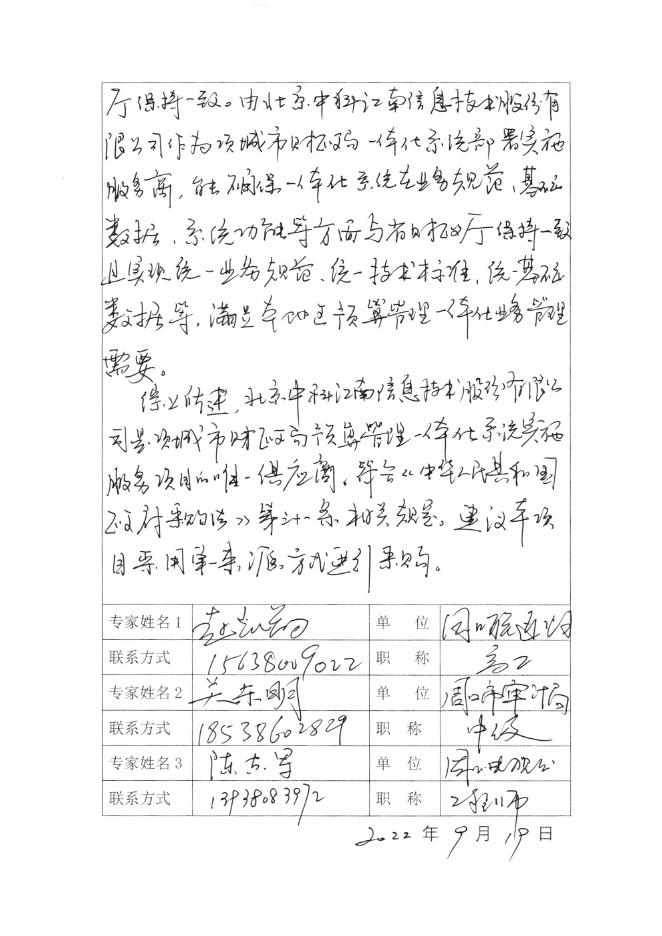 厅保持一致。由北京中科江南信息技术股份有
限公司作为项城市财政局一体化系统部署实施
服务商，能确保一体化系统在业务规范、基础
数据、系统功能等方面与省财政厅保持一致
且实现统一业务规范、统一技术标准，统一基础
数据等，满足本地区预算管理一体化业务管理
需要。
综上所述，北京中科江南信息技术股份有限公
司是项城市财政局预算管理一体化系统实施
服务项目的唯一供应商，符合《中华人民共和国
政府采购法》第三十一条相关规定。建议本项
目采用单一来源方式进行采购。
专家姓名1 单 位
联系方式 15638009022 职 称 高工
专家姓名2 吴东明 单 位 周口市审计局
联系方式 18538602829 职 称 中级
专家姓名3 陈志军 单 位
联系方式 13938083972 职 称 工程师
2022 年 9 月 19 日